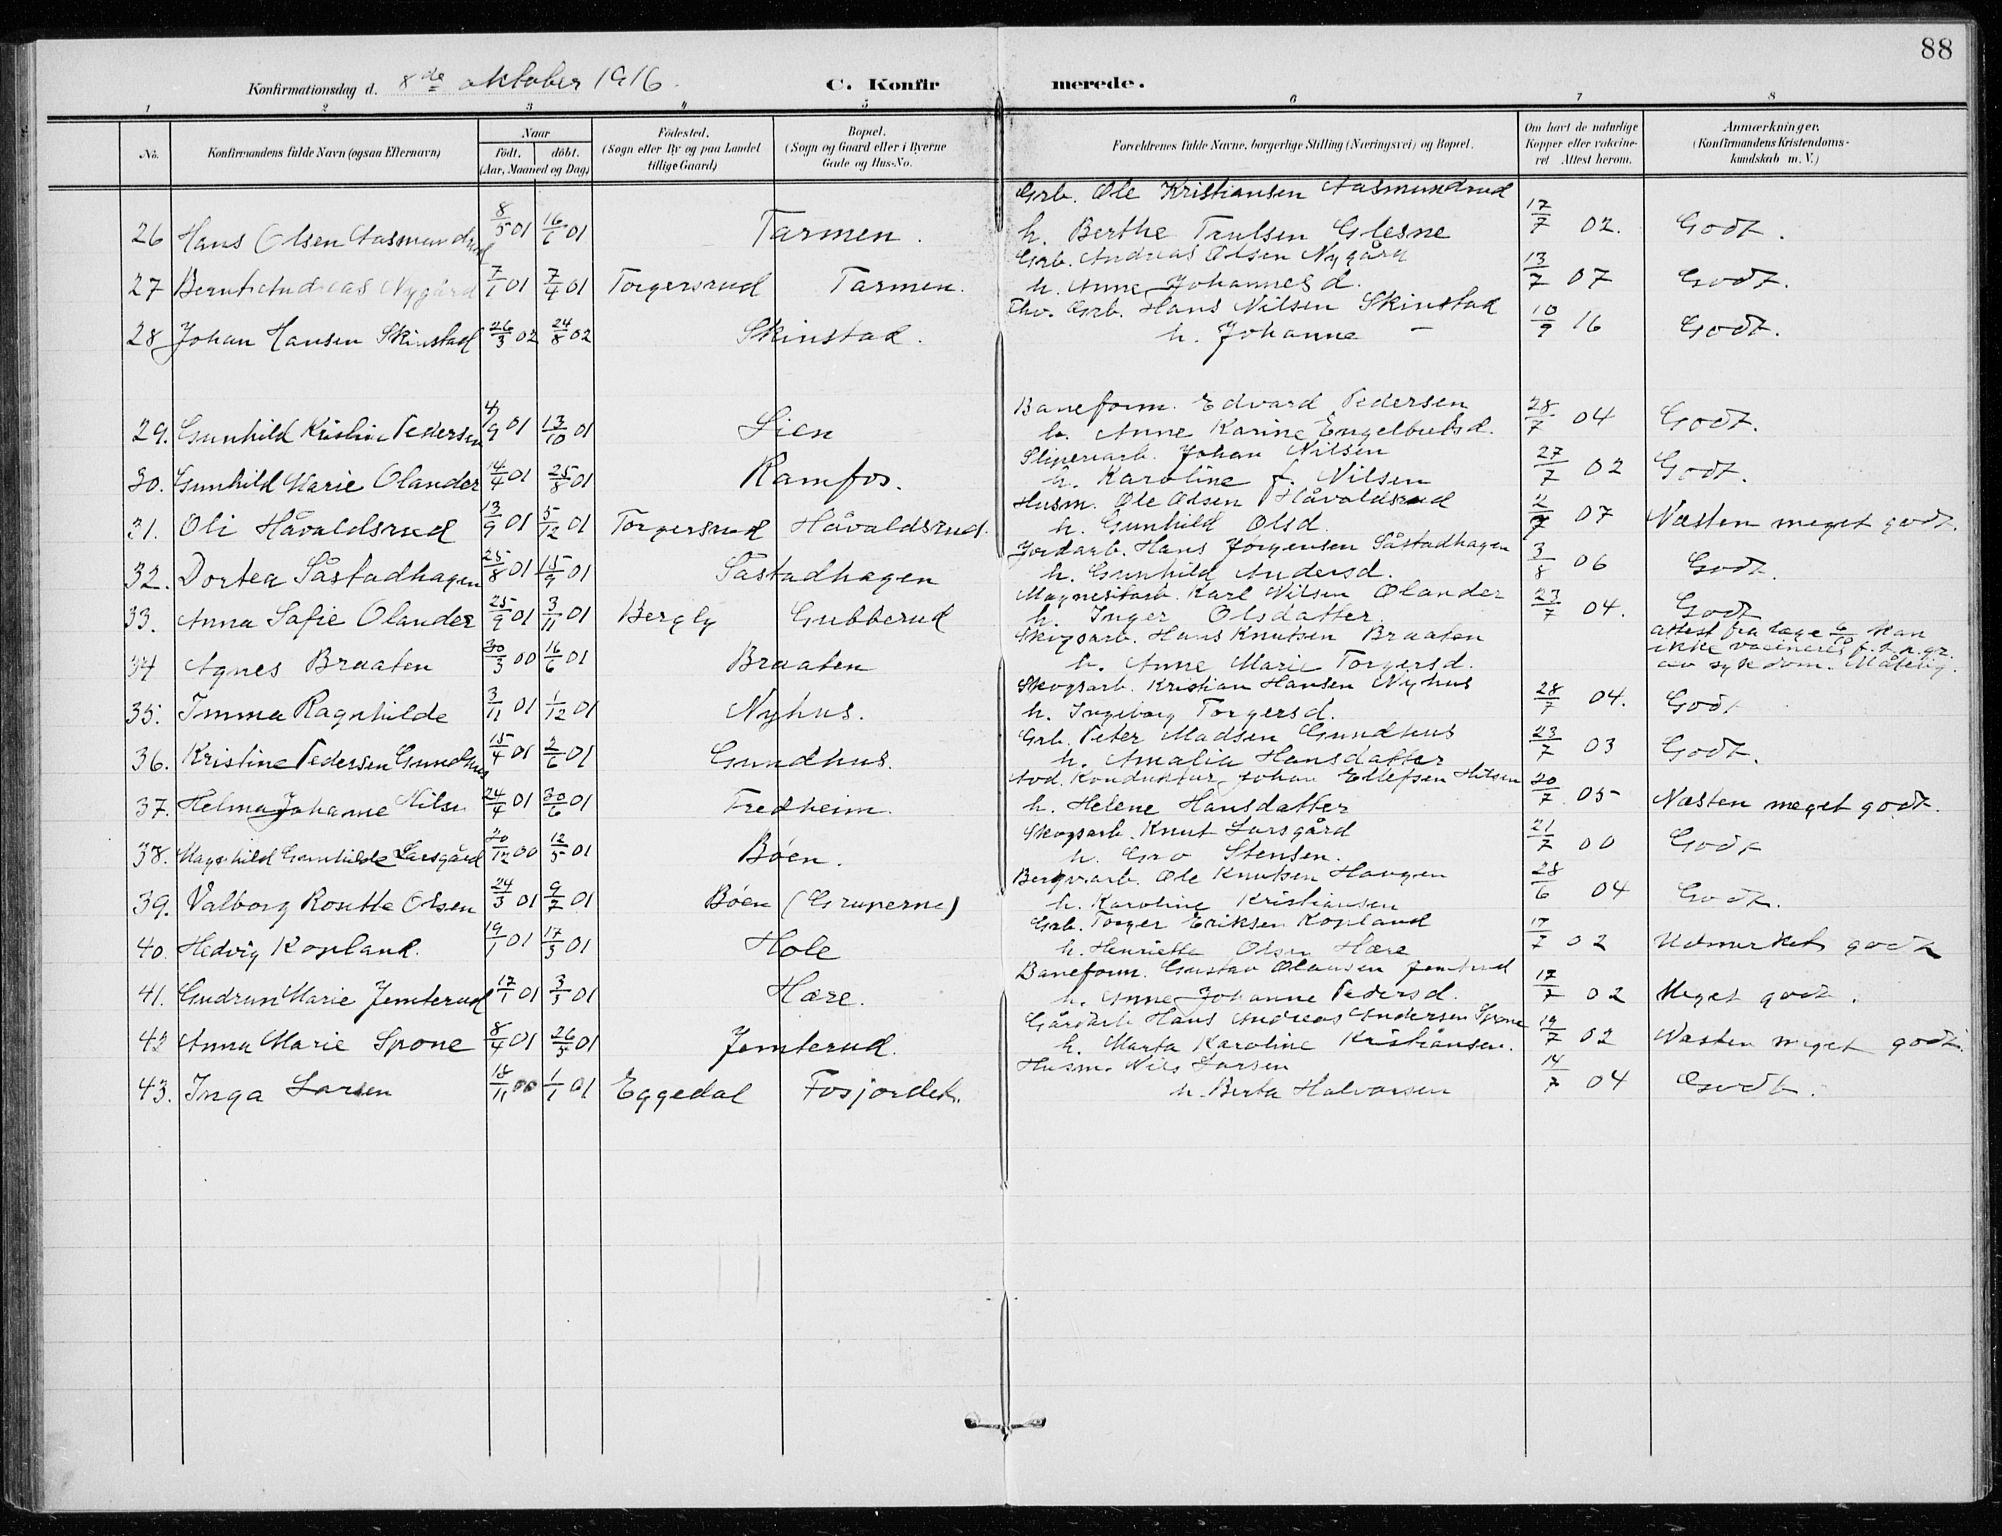 88
Konfirmationsdag d. 8de oktober 1916. C. Konfirmerede.
1 2 3 4 5 6 7 8
No. Konfirmandens fulde Navn (ogsaa Efternavn) Naar født. døbt. (Aar, Maaned og Dag) Fødested. (Sogn eller By og paa Landet tillige Gaard) Bopæl. (Sogn og Gaard eller i Byerne Gade og Hus-No. Forældrenes fulde Navne, borgerlige Stilling (Næringsvei) og Bopæl. Om havt de naturlige Kopper eller vakcineret Attest herom. Anmærkninger. (Konfirmandens Kristendomskundskab m. V.)
Grb. Ole Kristiansen Aasmundrud
26 Hans Olsen Aasmundrud 8/5 01 16/6 01 Tarmen. h. Berthe Trulsen Glesne 17/7 02. Godt.
Grb. Andreas Olsen Nygård
27 Bernt Andreas Nygård 7/1 01 7/4 01 Torgersrud Tarmen. h. Anne Johannesd. 13/7 07 Godt.
Grb. Hans Nilsen Skinstad
28 Johan Hansen Skinstad 26/3 02 24/8 02 Skinstad. h. Johanne — 10/9 16 Godt.
Baneform. Edvard Pedersen
29. Gunhild Kristine Pedersen 4/9 01 13/10 01 Lien h. Anne Karine Engelbretsd. 28/7 04 Godt.
Sliperiarb. Johan Nilsen
30. Gunhild Marie Olander 14/4 01 25/8 01 Ramfos. h. Karoline f. Nilsen 27/7 02 Godt.
Husm. Ole Olsen Håvaldsrud
31. Oli Håvaldsrud 13/9 01 5/12 01 Torgersrud Håvaldsrud. h. Gunhild Olsd. 07 Næsten meget godt.
Jordarb. Hans Jørgensen Såstadhagen
32. Dortea Såstadhagen 25/8 01 15/9 01 Såstadhagen h. Gunhild Andersd. 3/8 06 Godt.
Magnesitarb. Karl Nilsen Olander
33. Anna Sofie Olander 25/9 01 3/11 01 Bergly Gubberud h. Inger Olsdatter 23/7 04. Godt
Skogsarb. Hans Knutsen Braaten attest fra læge 6/10 kan
34 Agnes Braaten 30/3 00 16/6 01 Braaten h. Anne Marie Torgersd. ikke vacineres f. t. p. gr. av sykdom. Måtelig.
Skogsarb. Kristian Hansen Nyhus
35. Imma Ragnhilde 3/11 01 1/12 01 Nyhus. h. Ingeborg Torgersd. 28/7 04. Godt
Grb. Peter Madsen Gundhus
36. Kristine Pedersen Gundhus 15/4 01 2/6 01 Gundhus. h. Amalia Hansdatter 23/7 03 Godt.
Konduktør Johan Ellefsen Nilsen
37. Helma Johanne Nilsen 24/4 01 30/6 01 Fredheim. h. Helene Hansdatter 20/7 05 Næsten meget godt.
Skogsarb. Knut Larsgård
38. Magnhild Gunhilde Larsgård 20/12 00 12/5 01 Bøen. h. Gro Stensen. 21/7 00 Godt
Bergvarb. Ole Knutsen Haugen
39. Valborg Rosette Olsen 24/3 01 9/7 01 Bøen (Gruperne) h. Karoline Kristiansen 28/6 04 Godt.
Grb. Torger Eriksen Kopland
40. Hedvig Kopland. 19/1 01 17/3 01 Hole h. Henriette Olsen Hære 17/7 02 Udmerket godt
Baneform. Gustav Olausen Jemterud
41. Gudrun Marie Jemterud 17/1 01 3/3 01 Hære. h. Anne Johanne Pedersd. 17/7 02 Meget godt.
Gårdarb. Hans Andreas Andersen Spone
42 Anna Marie Spone 8/4 01 26/5 01 Jemterud. h. Marta Karoline Kristiansen. 19/7 02 Næsten meget godt.
Husm. Nils Larsen
43. Inga Larsen 18/11 00 1/1 01 Eggedal Fosjordet. h. Berta Halvorsen 14/7 04 Godt.